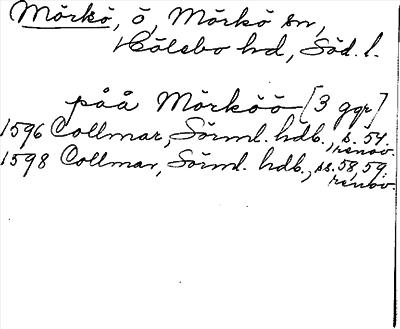 Mörkö, ö, Mörkö sn,
Hölebo hd, Söd. l.
påå Mörköö [3 ggr]
1596 Collmar, Sörml. hdb., s. 54.
renov.
1598 Collmar, Sörml. hdb., ss. 58, 59.
renov.